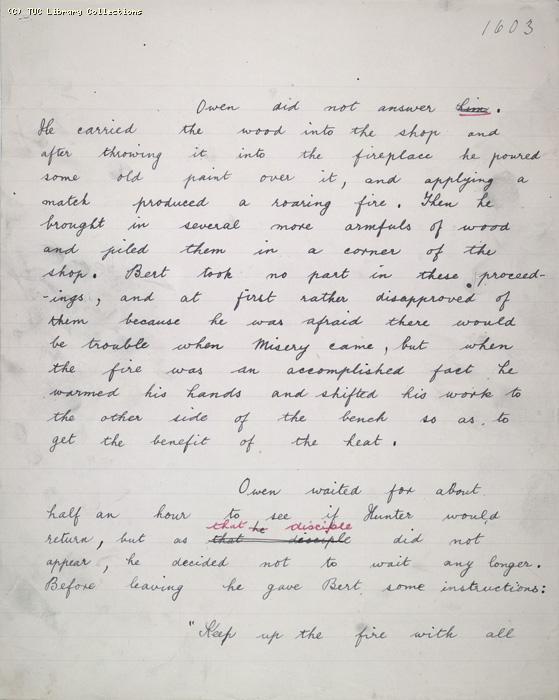 (C) TUC Library Collections
1603
Owen did not answer him.
He carried the wood into the shop and
after throwing it into the fireplace he poured
some old paint over it, and applying a
match produced a roaring fire. Then he
brought in several more armfuls of wood
and piled them in a corner of the
shop. Bert took no part in these proceed-
-ings, and at first rather disapproved of
them because he was afraid there would
be trouble when Misery came, but when
the fire was an accomplished fact he
warmed his hands and shifted his work to
the other side of the bench so as to
get the benefit of the heat.
Owen waited for about
half an hour to see if Hunter would
that he disciple
return, but as that disciple did not
appear, he decided not to wait any longer.
Before leaving he gave Bert some instructions:
"Keep up the fire with all